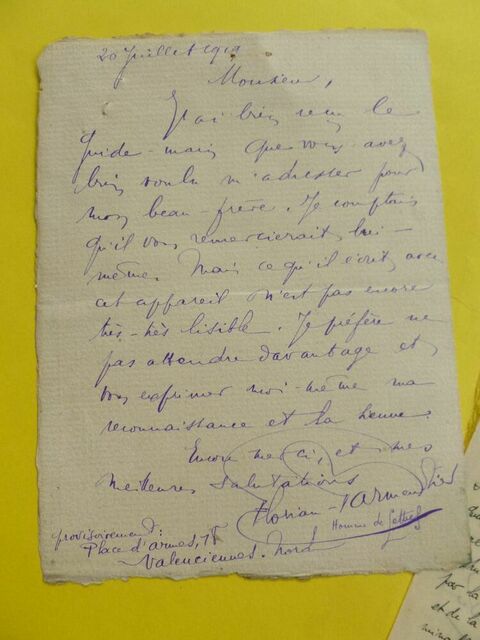 20 Juillet 1919
Monsieur,
J'ai bien reçu le
Guide-main que vous avez
bien voulu m'adresser pour
mon beau-frère. Je comptais
qu'il vous remercierait lui-
même. Mais ce qu'il écrit avec
cet appareil n'est pas encore
très-très lisible. Je préfère ne
pas attendre davantage et
vous exprimer moi-même ma
reconnaissance et la
Encore merci, et mes
meilleures salutations
Florian-Parmentier
Homme de Lettres
provisoirement:
Place d'armes,
Valenciennes. Nord
par la
et de la